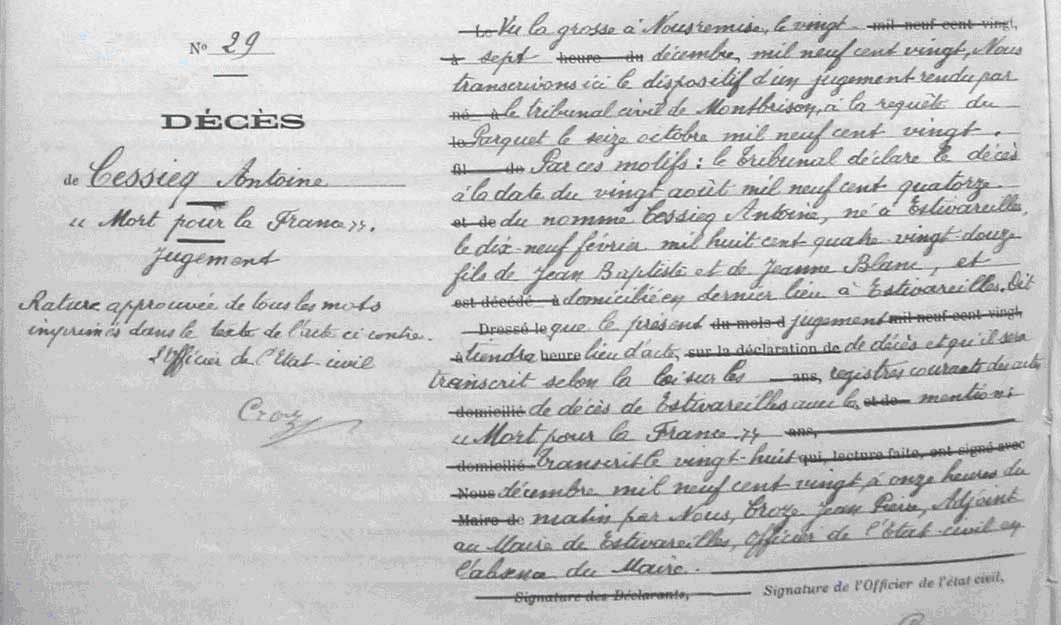 N° 29
DÉCÈS
de Cessieq Antoine
« Mort pour la France ».
Jugement
Rature approuvée de tous les mots
imprimés dans le texte de l'acte ci contre.
L'Officier de l'Etat civil
Croze
Le Vu la grosse à Nous remise, le vingt mil neuf cent vingt,
à sept heure du décembre, mil neuf cent vingt, Nous
transcrivons ici le dispositif d'un jugement rendu par
né à le tribunal civil de Montbrison, à la requête du
le Parquet le seize octobre mil neuf cent vingt.
fil de Par ces motifs : le Tribunal déclare le décès
à la date du vingt août mil neuf cent quatorze.
et de du nommé Cessieq Antoine, né à Estivareilles,
le dix-neuf février mil huit cent quatre vingt douze
fils de Jean Baptiste et de Jeanne Blanc, et
est décédé à domicilié en dernier lieu à Estivareilles. Dit
Dressé le que le présent du mois d jugement mil neuf cent vingt,
à tiendra heure lieu d'acte, sur la déclaration de de décès et qu'il sera
transcrit selon la loi sur les ans, registres courants des actes
domicilié de décès de Estivareilles avec la et de mention :
« Mort pour la France » ans,
domicilié Transcrit le vingt-huit qui, lecture faite, ont signé avec
Nous décembre mil neuf cent vingt, à onze heures du
Maire de matin par Nous, Croze Jean Pierre, Adjoint
au Maire de Estivareilles, Officier de l'Etat civil en
l'absence du Maire.
Signature des Déclarants, Signature de l'Officier de l'état civil,